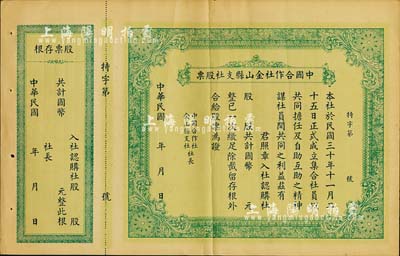 上海陽明拍賣
www.ymauction.com
中國合作社金山縣支社股票
特字第 號
本社於民國三十年十一月
十五日正式成立集合社員
共同擔任及自助互助之精神
謀社員間共同之利益茲有
君照章入社認購社
股 股共計國幣 元
整已一次繳足除截留存根外
合給股票為證
中國合作社社長
金山縣支社
中華民國 年 月 日
特字第 號
股票存根
入社認購社股 股
共計國幣 元整此根
社長
中華民國 年 月 日